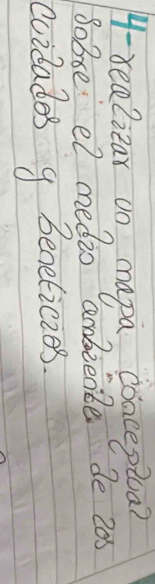 4-realizar un mapa conceptual
sobre el medio ambiente de los
cuidados y beneficios.